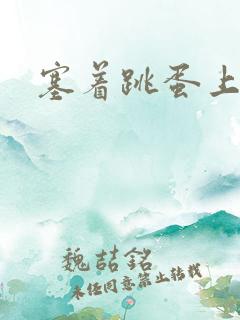 塞着跳蛋上
魏喆銘
未经同意禁止转载